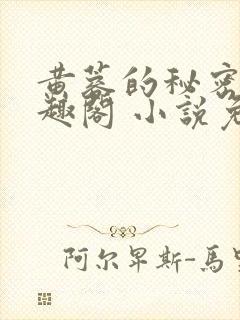 黄墓的秘密
趣阁 小说免
阿尔卑斯-马